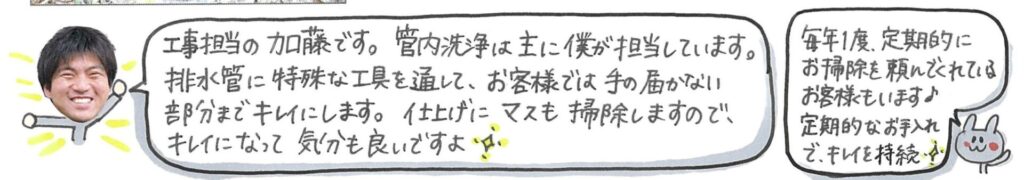 工事担当の加藤です。管内洗浄は主に僕が担当しています。
排水管に特殊な工具を通して、お客様では手の届かない
部分までキレイにします。仕上げにマスも掃除しますので、
キレイになって気分も良いですよ
毎年1度、定期的に
お掃除を頼んでくれている
お客様もいます♪
定期的なお手入れ
で、キレイを持続